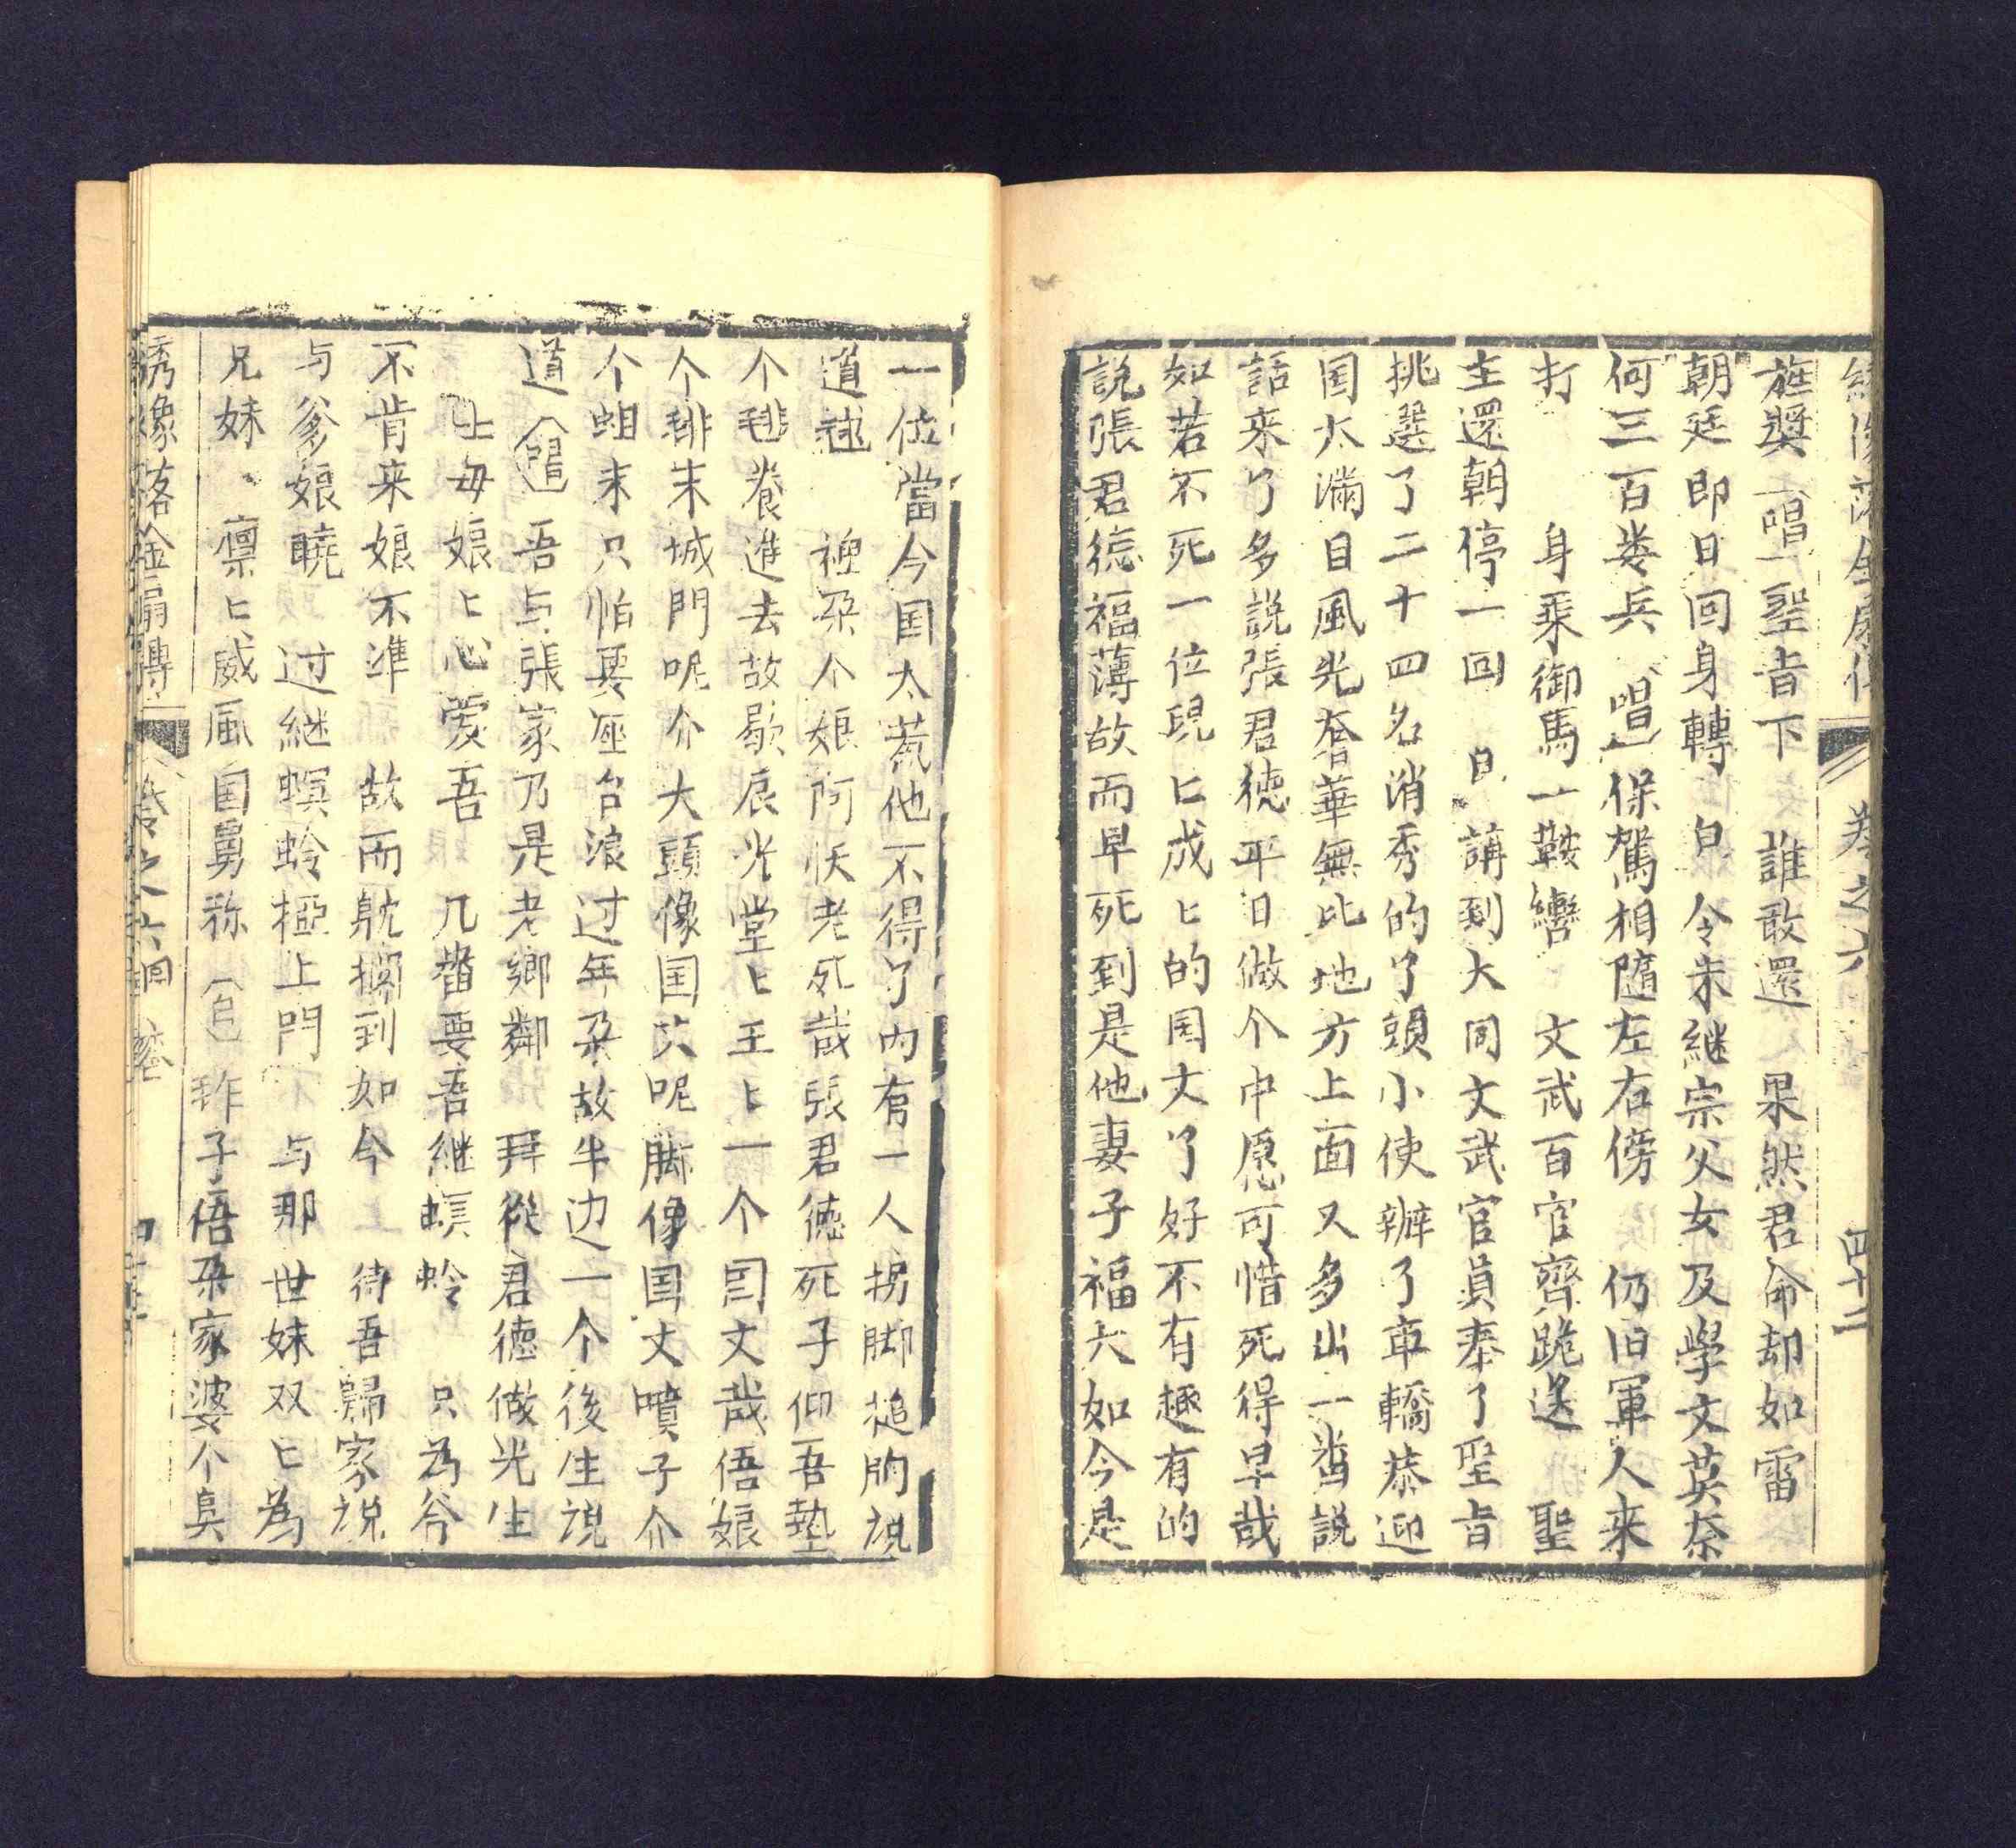 卷之六 四十二
旌獎(唱)聖旨下 誰敢還 果然君命却如雷
朝廷即日回身轉 白 令朱継宗父女及學文英奈
何三百娄兵(唱)保駕相隨左右傍 仍旧軍人来
打 身乘御馬一鞍轡 文武百官齊跪送 聖
主還朝停一回 白 講到大同文武官員奉了聖旨
挑選了二十四名消秀的了頭小使辦了車轎恭迎
国太滿目風光奢華無比地方上面又多出一畨説
話来了多説張君徳平日做个中愿可惜死得早哉
如若不死一位現匕成匕的国丈了好不有趣有的
説張君徳福薄故而早死到是他妻子福大如今是
一位當今国太惹他不得了内有一人拐脚 説
道 个娘阿 老 死哉張君徳死子仰吾
个 養進去故歇辰光堂匕王匕一个国丈哉俉娘
个 末城門呢介大頭像国丈呢脚像国丈噴子介
个 末只怕要 台浪过年 故半边一个後生説
道 吾与張家乃是老鄉鄰 拜從君徳做光生
母娘匕心爱吾 几畨要吾継螟蛉 只為爷
不肯来娘不準 故而躭擱到如今 待吾歸家説
与爹娘曉 过継螟蛉 上門 与那世妹双匕為
兄妹 凛匕威風国舅称(白) 子俉 家婆个
绣像落金扇傳 卷之六